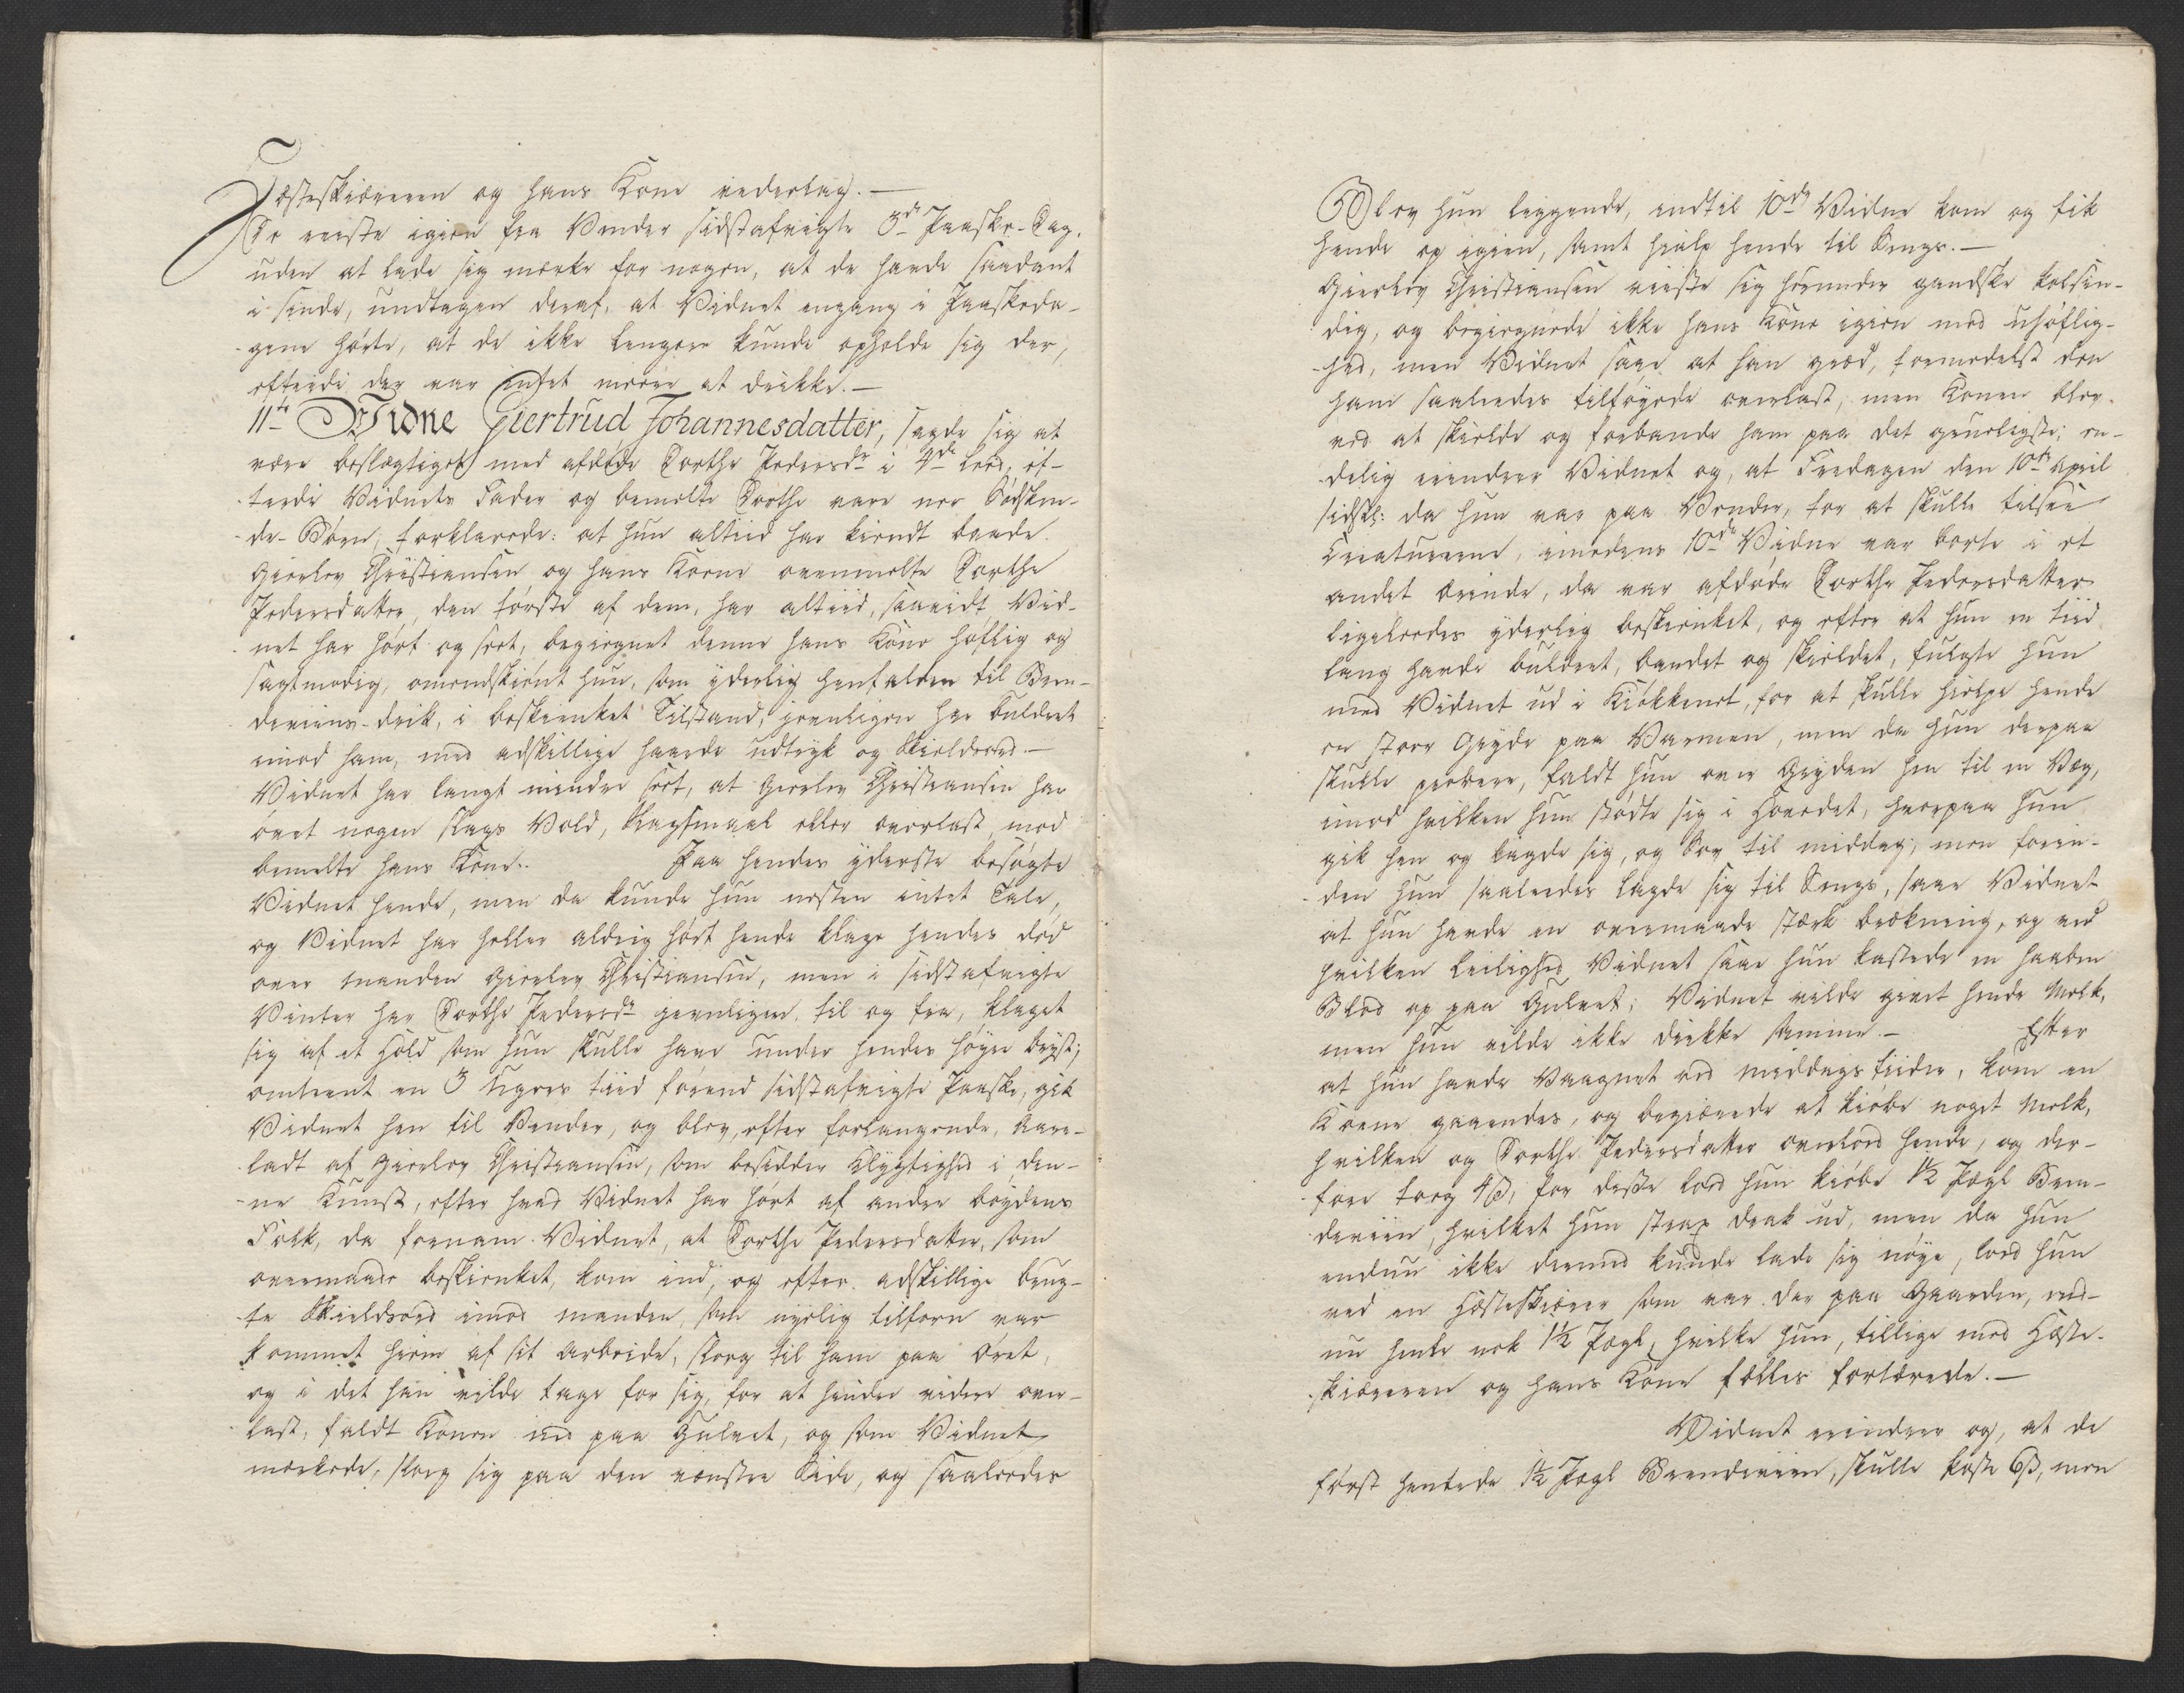 Hæsteskiæreren og hans Kone vederlag. —
De reiste igien fra Vender sidstafvigte 3de Paaske-Dag,
uden at lade sig mærke for nogen, at de havde saadant
i sinde, undtagen deraf, at Vidnet engang i Paaskeda-
gene hørte, at de ikke længere kunde opholde sig der,
efterdi der var intet meere at drikke. —
11te Vidne Giertrud Johannesdatter, sagde sig at
være beslægtiget med afdøde Dorthe Pedersdr i 4de Leed, ef-
terdi Vidnets Fader og bemelte Dorthe vare ner Sødsken-
de-Børn, forklarede: at hun altiid har kiendt baade
Gierlov Christiansen og hans Koene ovenmelte Dorthe
Pedersdatter, den første af dem, har altiid, saaviidt Vid-
net har hørt og seet, begiegnet denne hans Kone høflig og
sagtmodig, omendskiønt hun, som yderlig henfalden til Bren-
deviins-drik, i beskienket Tilstand, jevnligen har buldret
imod ham, med adskillige haarde udtryk og Skieldsord. —
Vidnet har langt mindre seet, at Gierlov Christiansen har
øvet nogen slags Vold, Klagsmaal eller overlast mod
bemelte hans Kone. Paa hendes yderste besøgte
Vidnet hende, men da kunde hun nesten intet Tale,
og Vidnet har heller aldrig hørt hende klage hendes død
over manden Gierlov Christiansen, men i sidstafvigte
Vinter har Dorthe Pedersdr jevnligen til og fra, klaget
sig af et Hold som hun skulle have under hendes høyre bryst;
omtrent en 3 Ugers tiid førend sidstafvigte Paaske, gik
Vidnet hen til Vender, og blev, efter forlangende, Aare-
ladt af Gierlov Christiansen, som besidder Dygtighed i den-
ne Kunst, efter hvad Vidnet har hørt af andre bøydens
Folk, da fornam Vidnet, at Dorthe Pedersdatter, som
overmaade beskienket, kom ind, og efter adskillige brug-
te Skieldsord imod manden, som nyelig tilforn var
kommet hiem af sit arbeide, slog til ham paa Øret,
og i det han vilde tage for sig, for at hindre videre over-
last, faldt Konen ned paa Gulvet, og som Vidnet
mærkede, slog sig paa den venstre Side, og saaleedes
Blev hun liggende, indtil 10de Vidne kom og fik
hende op igien, samt hialp hende til Sengs. —
Gierlov Christiansen viiste sig herunder gandske kolsin-
dig, og begiegnede ikke hans Kone igien med uhøflig-
hed, men Vidnet saae at han græd, formedelst den
ham saaleedes tilføyede overlast, men Konen blev
ved at skielde og forbande ham paa det grueligste; en-
delig erindrer Vidnet og, at Fredagen den 10de April
sidstl: da hun var paa Vender, for at skulle tilsee
Creaturerne, imedens 10de Vidne var borte i et
andet ærinde, da var afdøde Dorthe Pedersdatter
ligeleedes yderlig beskienket, og efter at hun en tiid
lang havde buldret, bandet og skieldet, fulgte hun
med Vidnet ud i Kiøkkenet, for at skulle hielpe hende
en stoer Gryde paa Varmen, men da hun derpaa
skulle probere, faldt hun over Gryden hen til en Væg,
imod hvilken hun stødte sig i Hovedet, hvorpaa hun
gik hen og lagde sig, og Sov til middag; men foren-
den hun saaleedes lagde sig til Sengs, saae Vidnet
at hun havde en overmaade stærk brækning, og ved
hvilken leilighed Vidnet saae hun kastede en haaben
Blod op paa Gulvet; Vidnet vilde givet hende Melk,
men hun vilde ikke drikke samme. — Efter
at hun havde Vaagnet ved middags tiider, kom en
Koene gaaendes, og begiærede at kiøbe noget Melk,
hvilken og Dorthe Pedersdatter overlod hende, og der-
fore tog 4 ß, for disse lod hun kiøbe 1½ Pægl Bren-
deviin, hvilket hun strax drak ud, men da hun
endnu ikke dermed kunde lade sig nøye, lod hun
ved en Hæsteskiærer som var der paa Gaarden, end-
nu hente nok 1½ Pægl, hvilke hun, tillige med Hæste-
skiæreren og hans Kone fælles fortærede. —
Vidnet erindrer og, at de
først hentede 1½ Pægl Brendeviin, skulle koste 6 ß, men